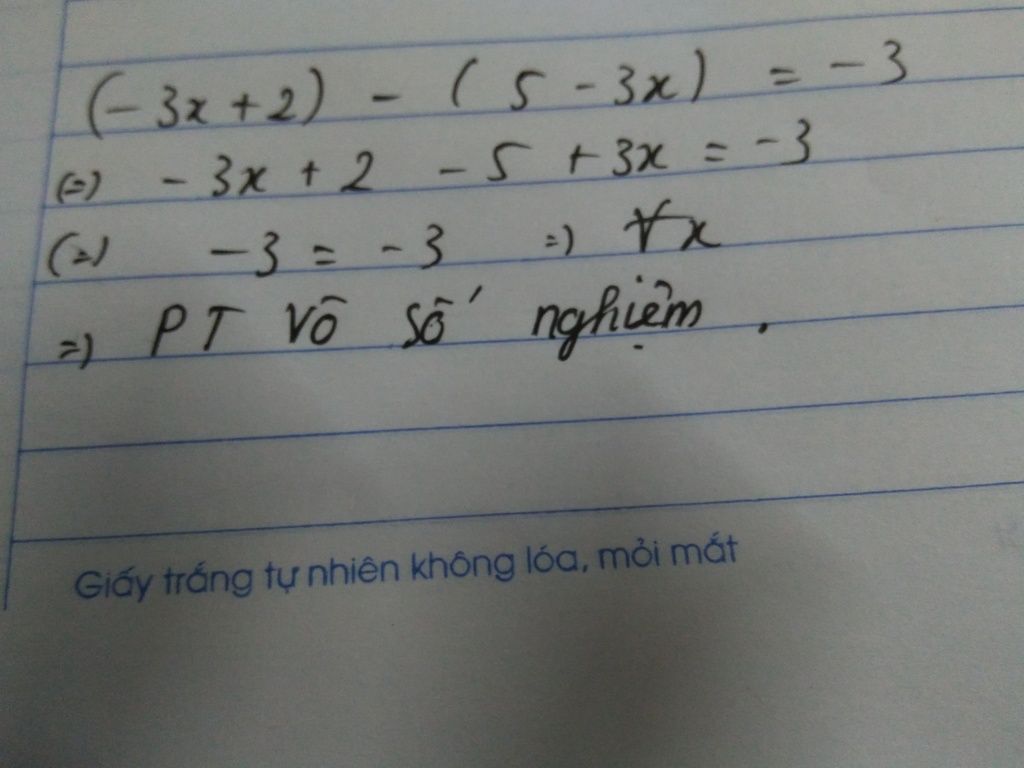 (-3x+2) - (5-3x) = -3
(=) -3x + 2 - 5 + 3x = -3
(=) -3 = -3 =) ∀x
=) PT Vô số nghiệm.
Giấy trắng tự nhiên không lóa, mỏi mắt